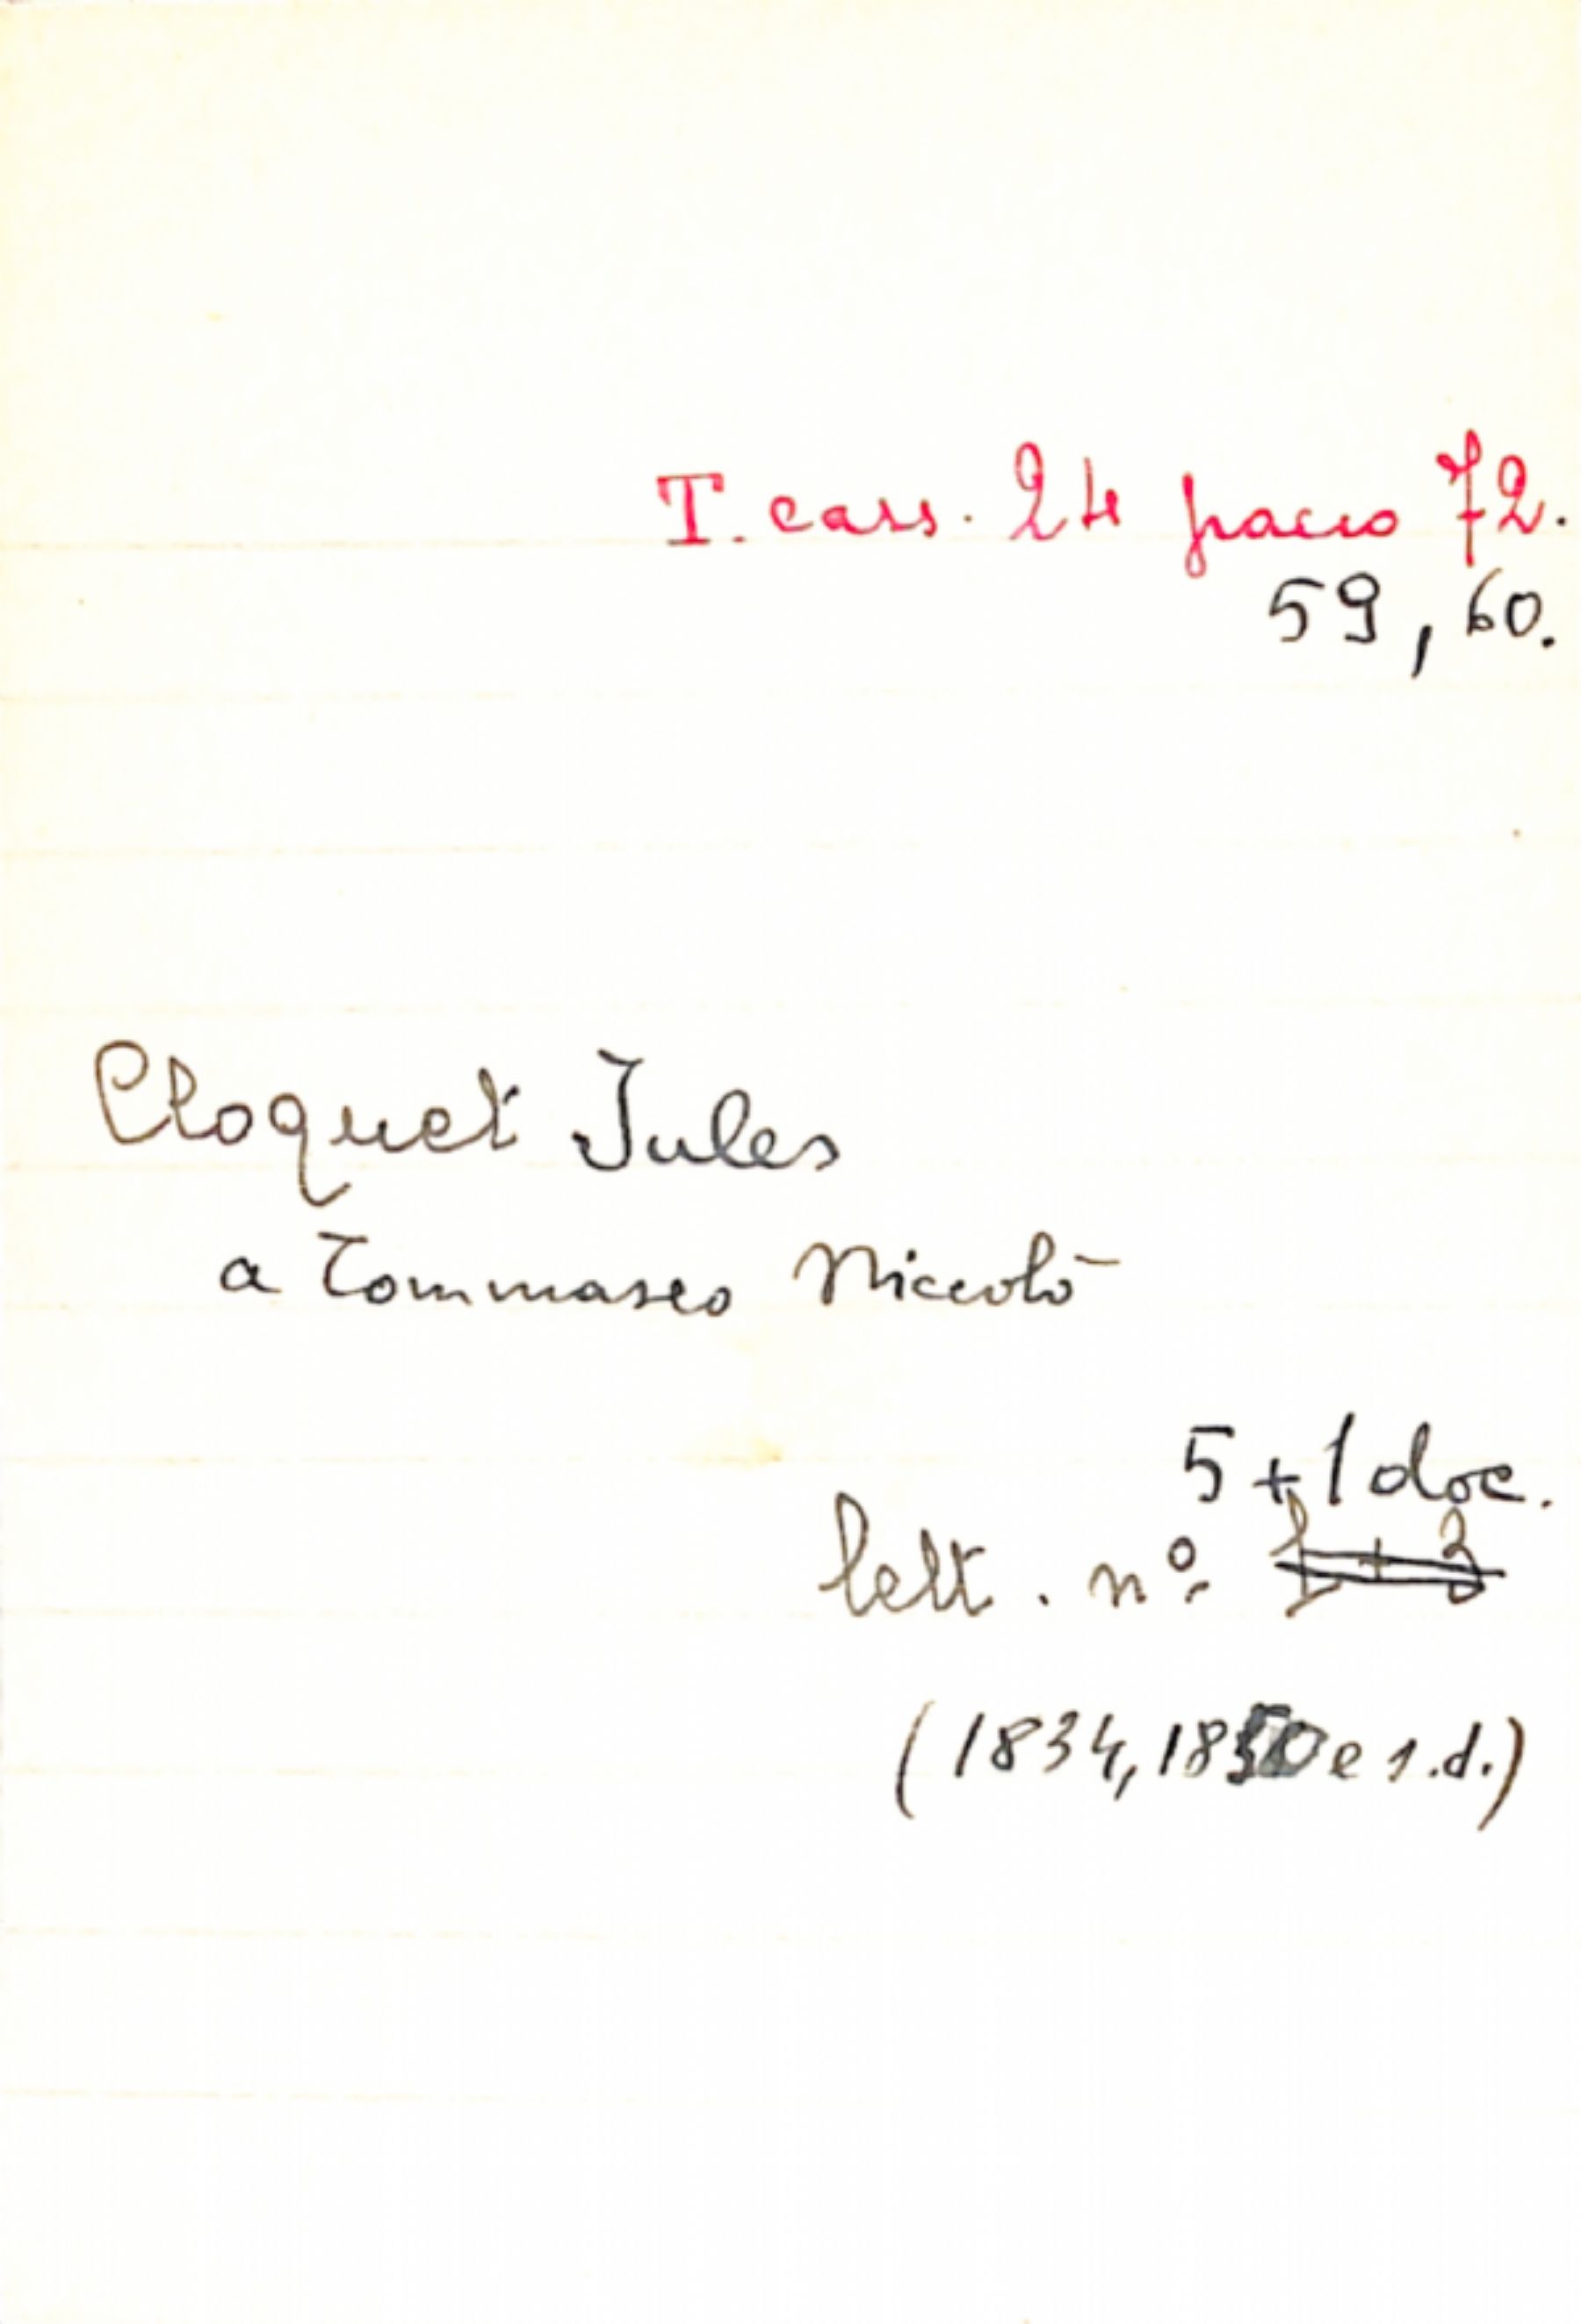 T. cass. 24 pacco 72.
59, 60.
Cloquet Jules
a Tommaseo Niccolò
5 + 1 doc.
lett. nº
(1834, 1850 e s.d.)